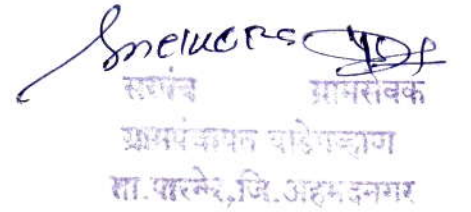 सरपंच ग्रामसेवक
ग्रामपंचायत वाडेगव्हाण
ता.पारनेर,जि.अहमदनगर